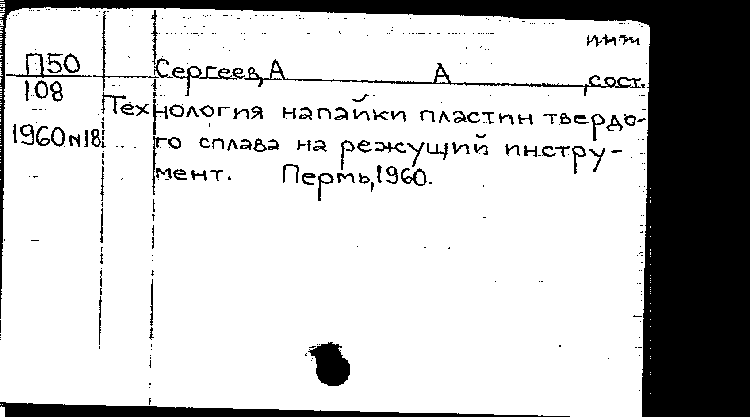 П50
108
1960 N18
Сергеев, А А , сост.
Технология напайки пластин твердо-
го сплава на режущий инстру-
мент. Пермь, 1960.